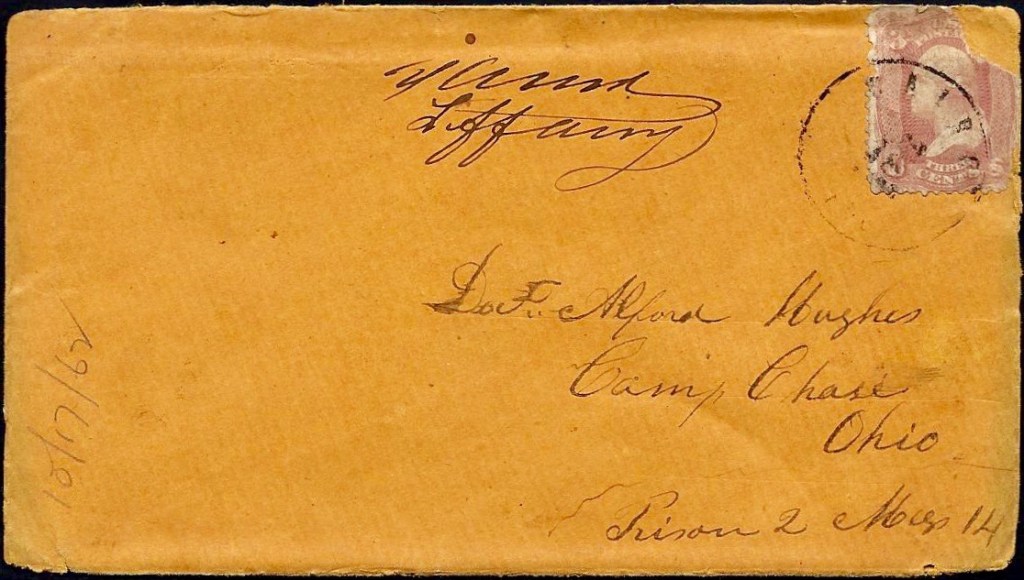 Tiffany
CAIRO
18
THREE
CENTS
Alford Hughes
Camp Chase
Ohio
Prison 2 Mess 14
10/17/62